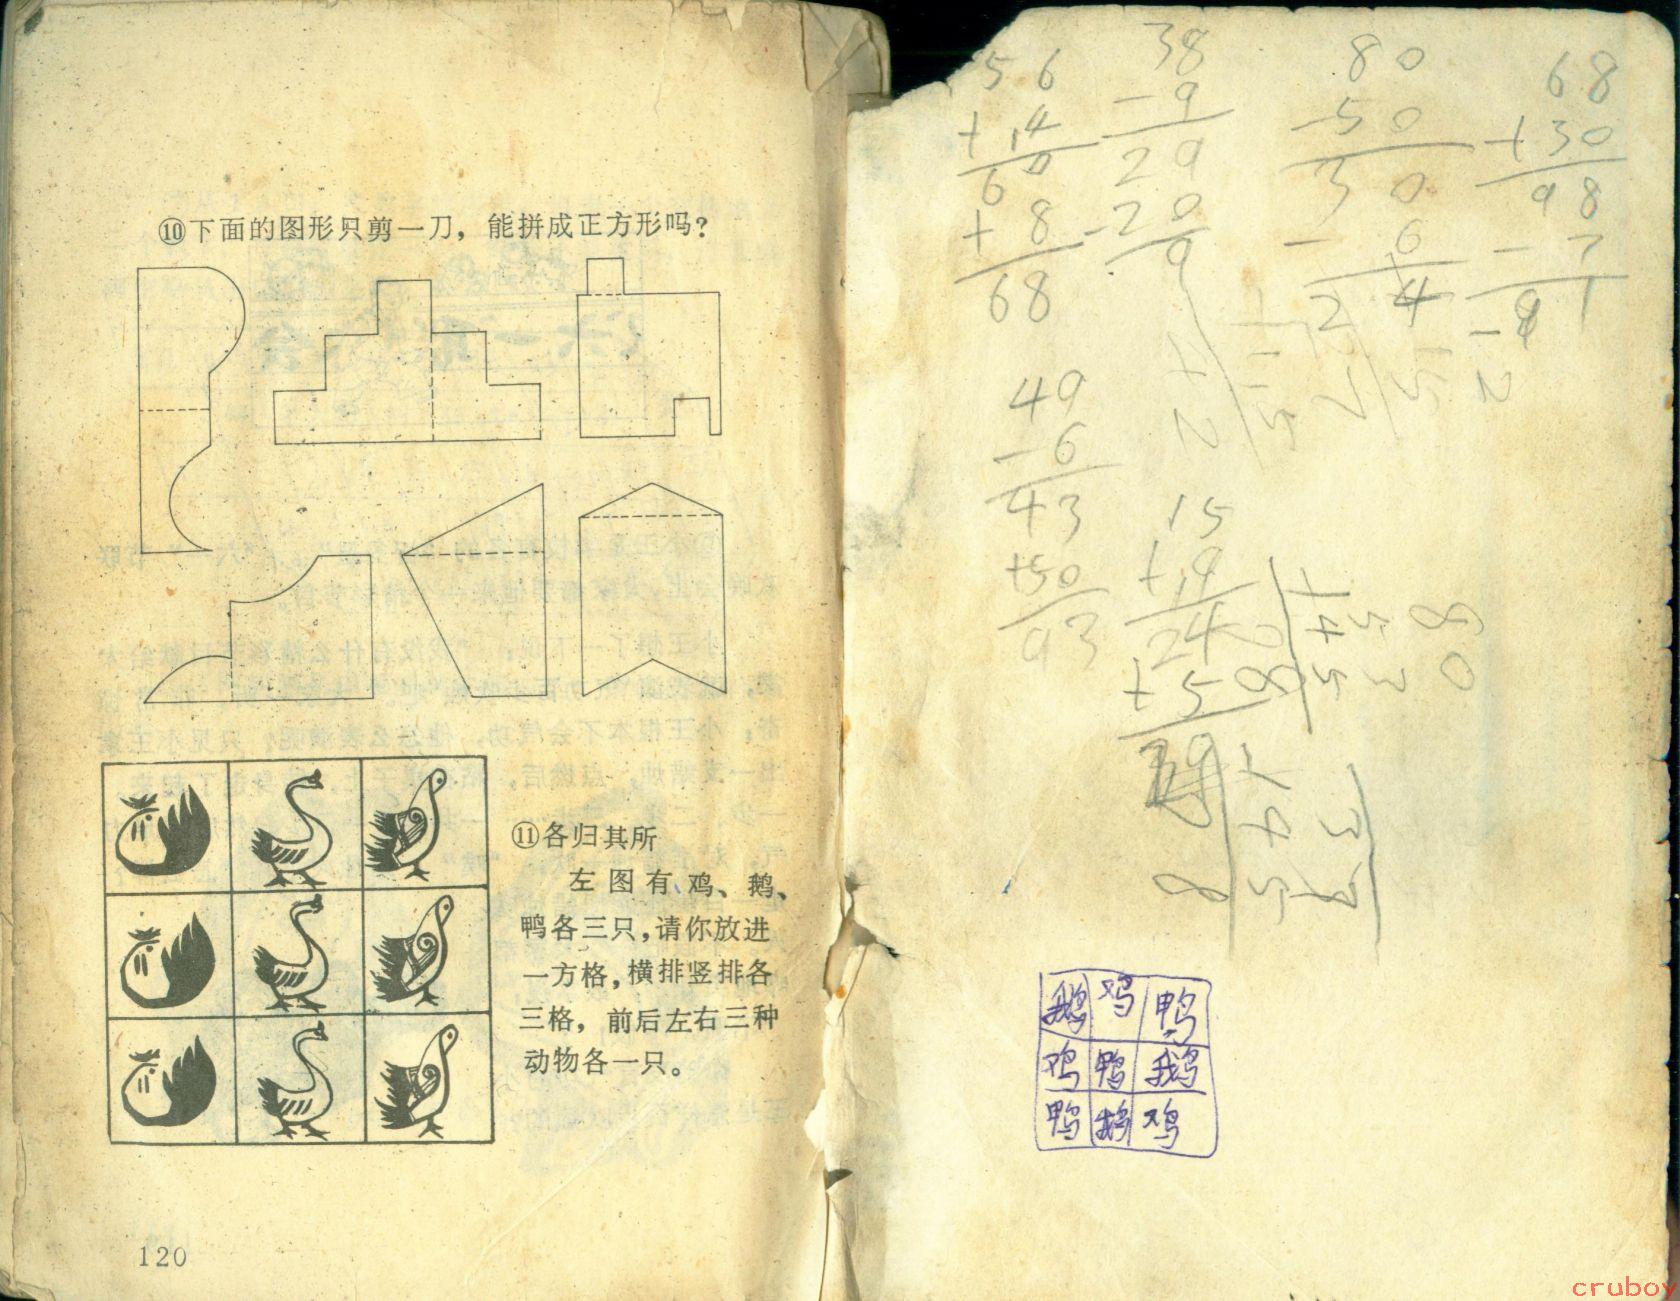 ⑩下面的图形只剪一刀，能拼成正方形吗?
⑪各归其所
左图有、鸡、鹅、
鸭各三只，请你放进
一方格，横排竖排各
三格，前后左右三种
动物各一只。
120
56
+14
60
+8
68
38
-9
29
-20
9
80
-50
30
-6
24
68
+30
98
-7
91
49
-6
43
+50
93
15
+19
24
+5
鹅 鸡 鸭
鸡 鸭 鹅
鸭 鹅 鸡
cruboy